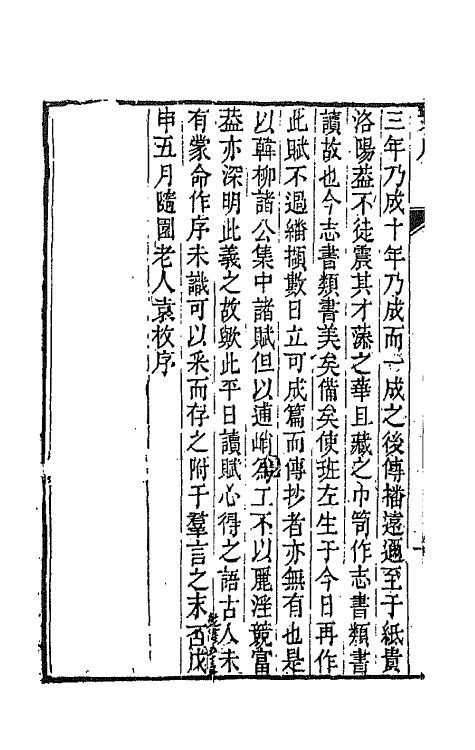 三年乃成十年乃成而一成之後傳播遠邇至于紙貴
洛陽葢不徒震其才藻之華且藏之巾笥作志書類書
讀故也今志書類書美矣備矣使班左生于今日再作
此賦不過繙擷數日立可成篇而傳抄者亦無有也是
以韓柳諸公集中諸賦但以逋峭為工不以麗淫競富
葢亦深明此義之故歟此平日讀賦心得之語古人未
有蒙命作序未識可以采而存之附于羣言之末否戊
申五月隨園老人袁枚序